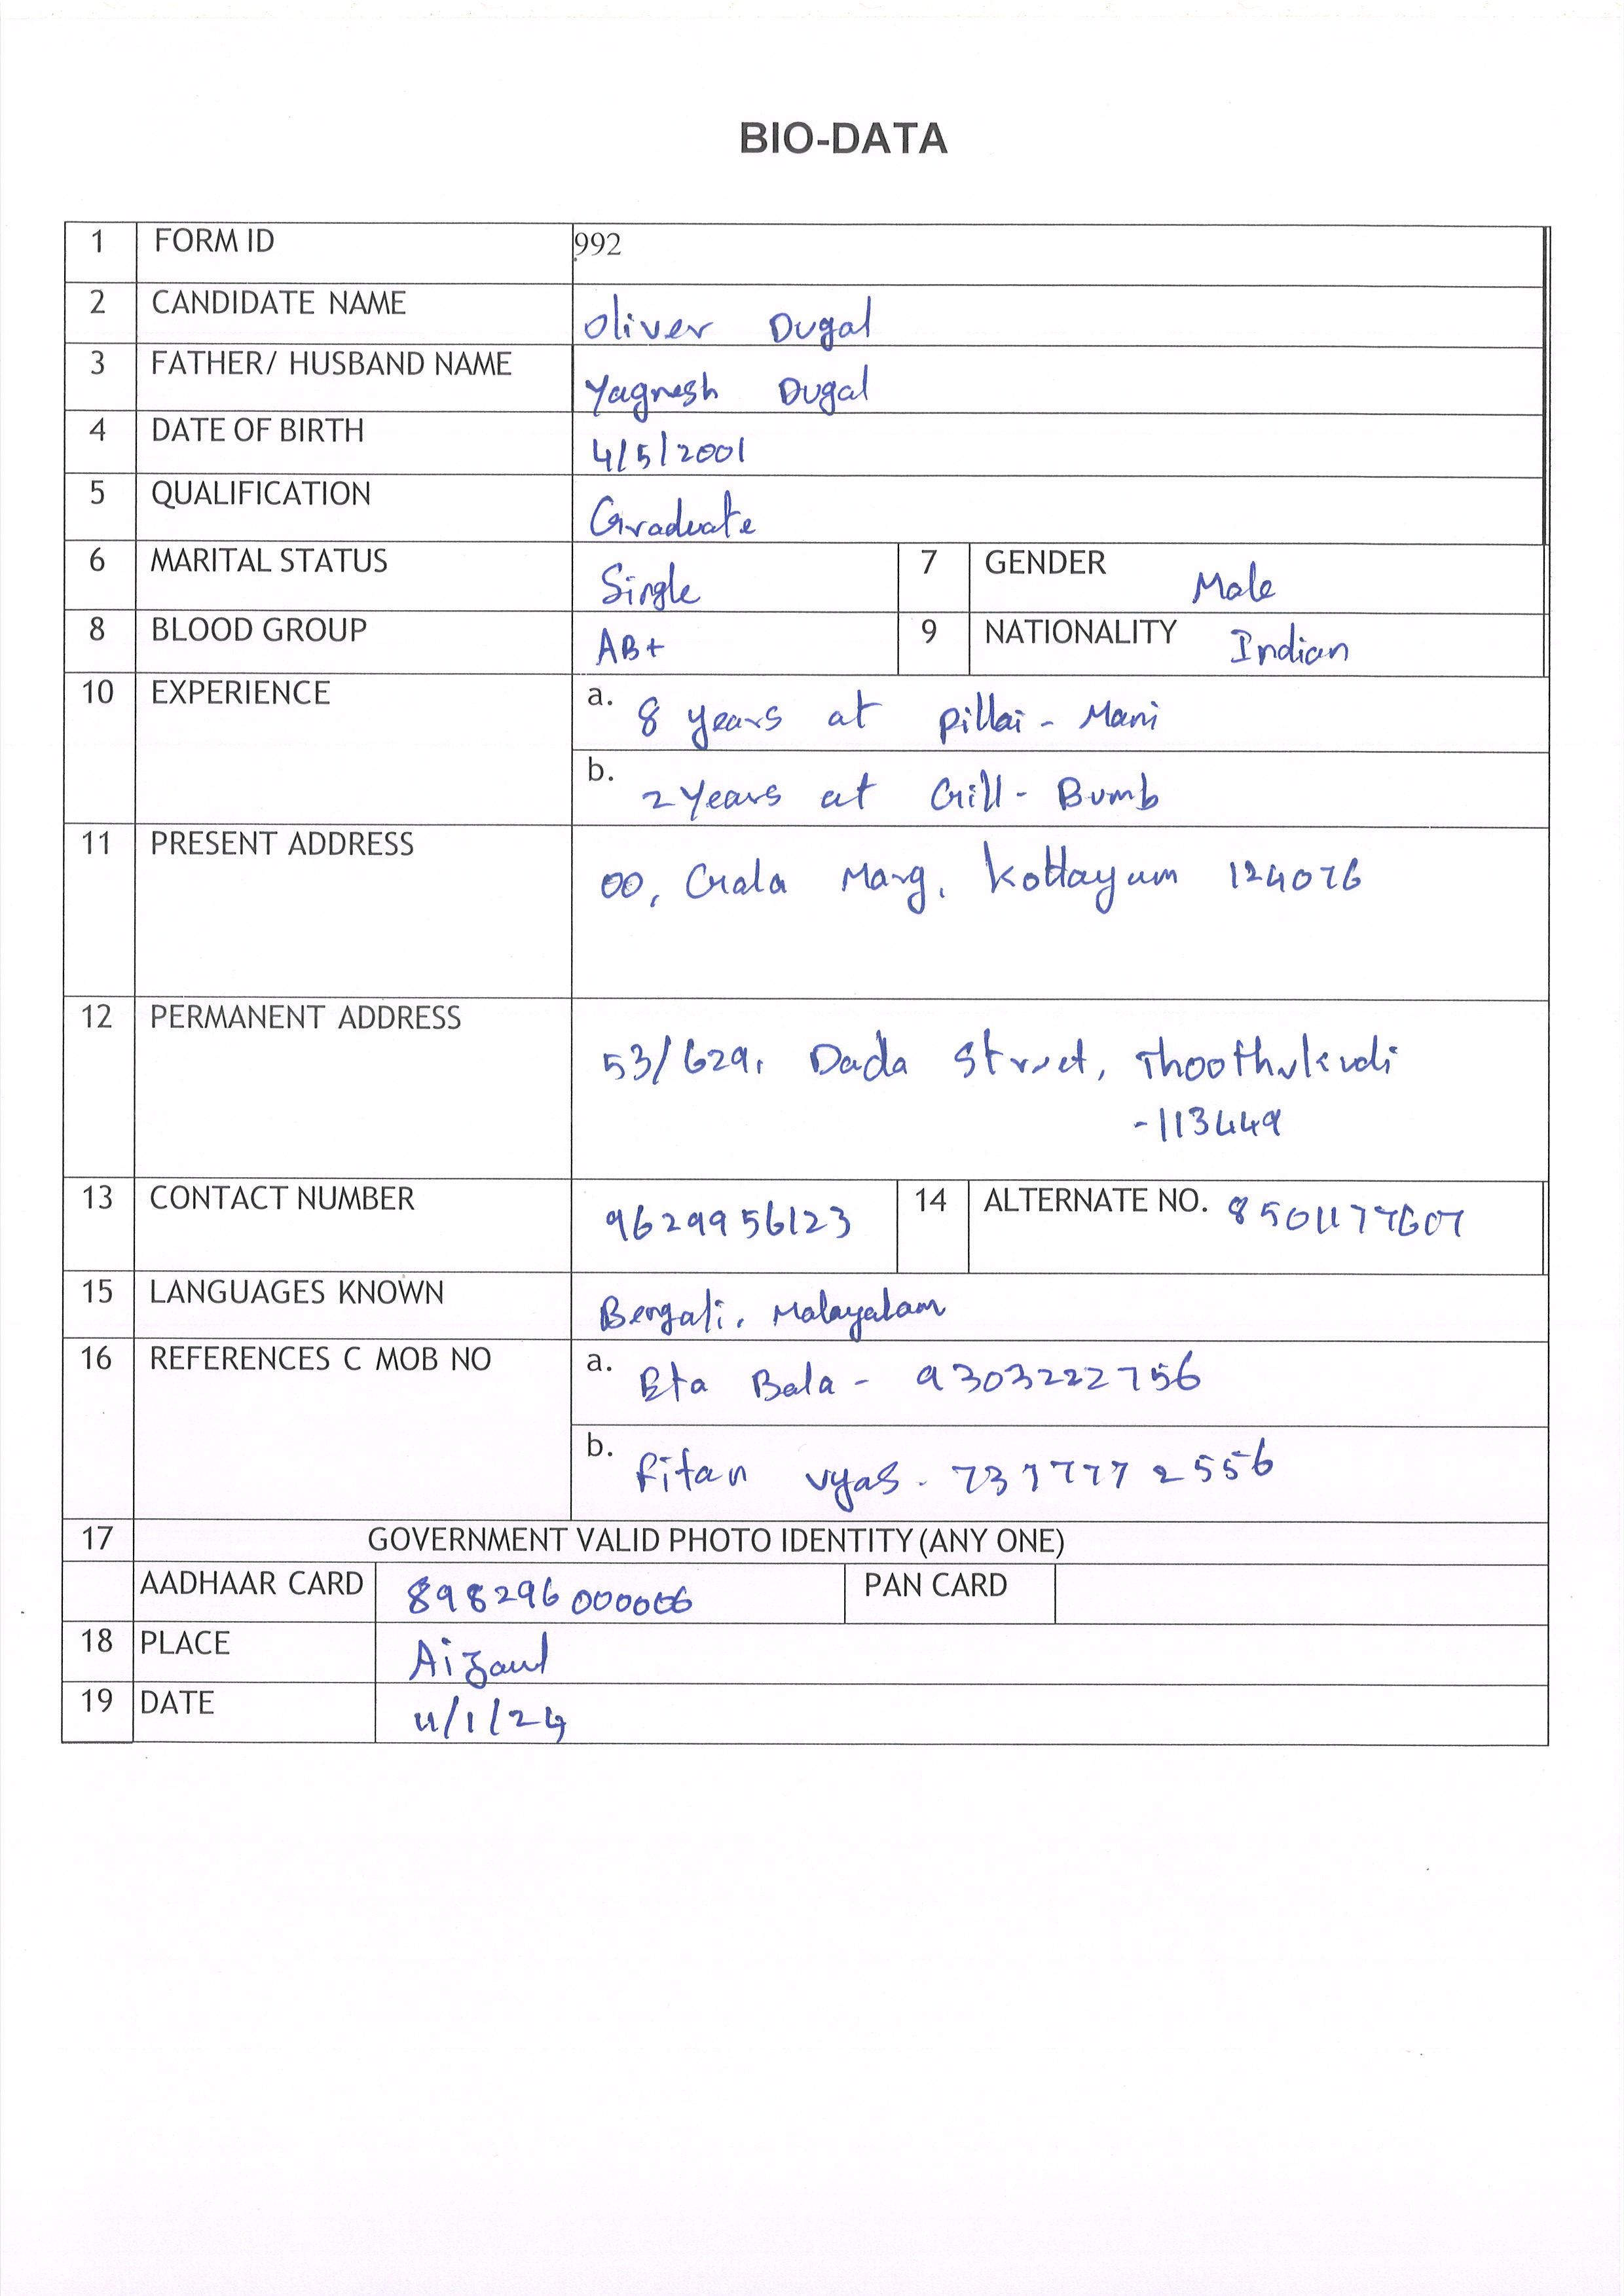 BIO-DATA
1 FORM ID 992
2 CANDIDATE NAME Oliver Dugal
3 FATHER/ HUSBAND NAME Yagnesh Dugal
4 DATE OF BIRTH 4/5/2001
5 QUALIFICATION Graduate
6 MARITAL STATUS Single 7 GENDER Male
8 BLOOD GROUP AB+ 9 NATIONALITY Indian
10 EXPERIENCE a. 8 years at Pillai - Mani
b. 2 Years at Gill - Bumb
11 PRESENT ADDRESS 00, Gala Marg, Kottayam 124076
12 PERMANENT ADDRESS 53/629, Dada Street, Thoothukudi
- 113449
13 CONTACT NUMBER 9629956123 14 ALTERNATE NO. 8501177607
15 LANGUAGES KNOWN Bengali, Malayalam
16 REFERENCES C MOB NO a. Eta Bala - 9303222756
b. Fitan Vyas - 7377772556
17 GOVERNMENT VALID PHOTO IDENTITY (ANY ONE)
AADHAAR CARD 898296000006 PAN CARD
18 PLACE Aizawl
19 DATE 4/1/24